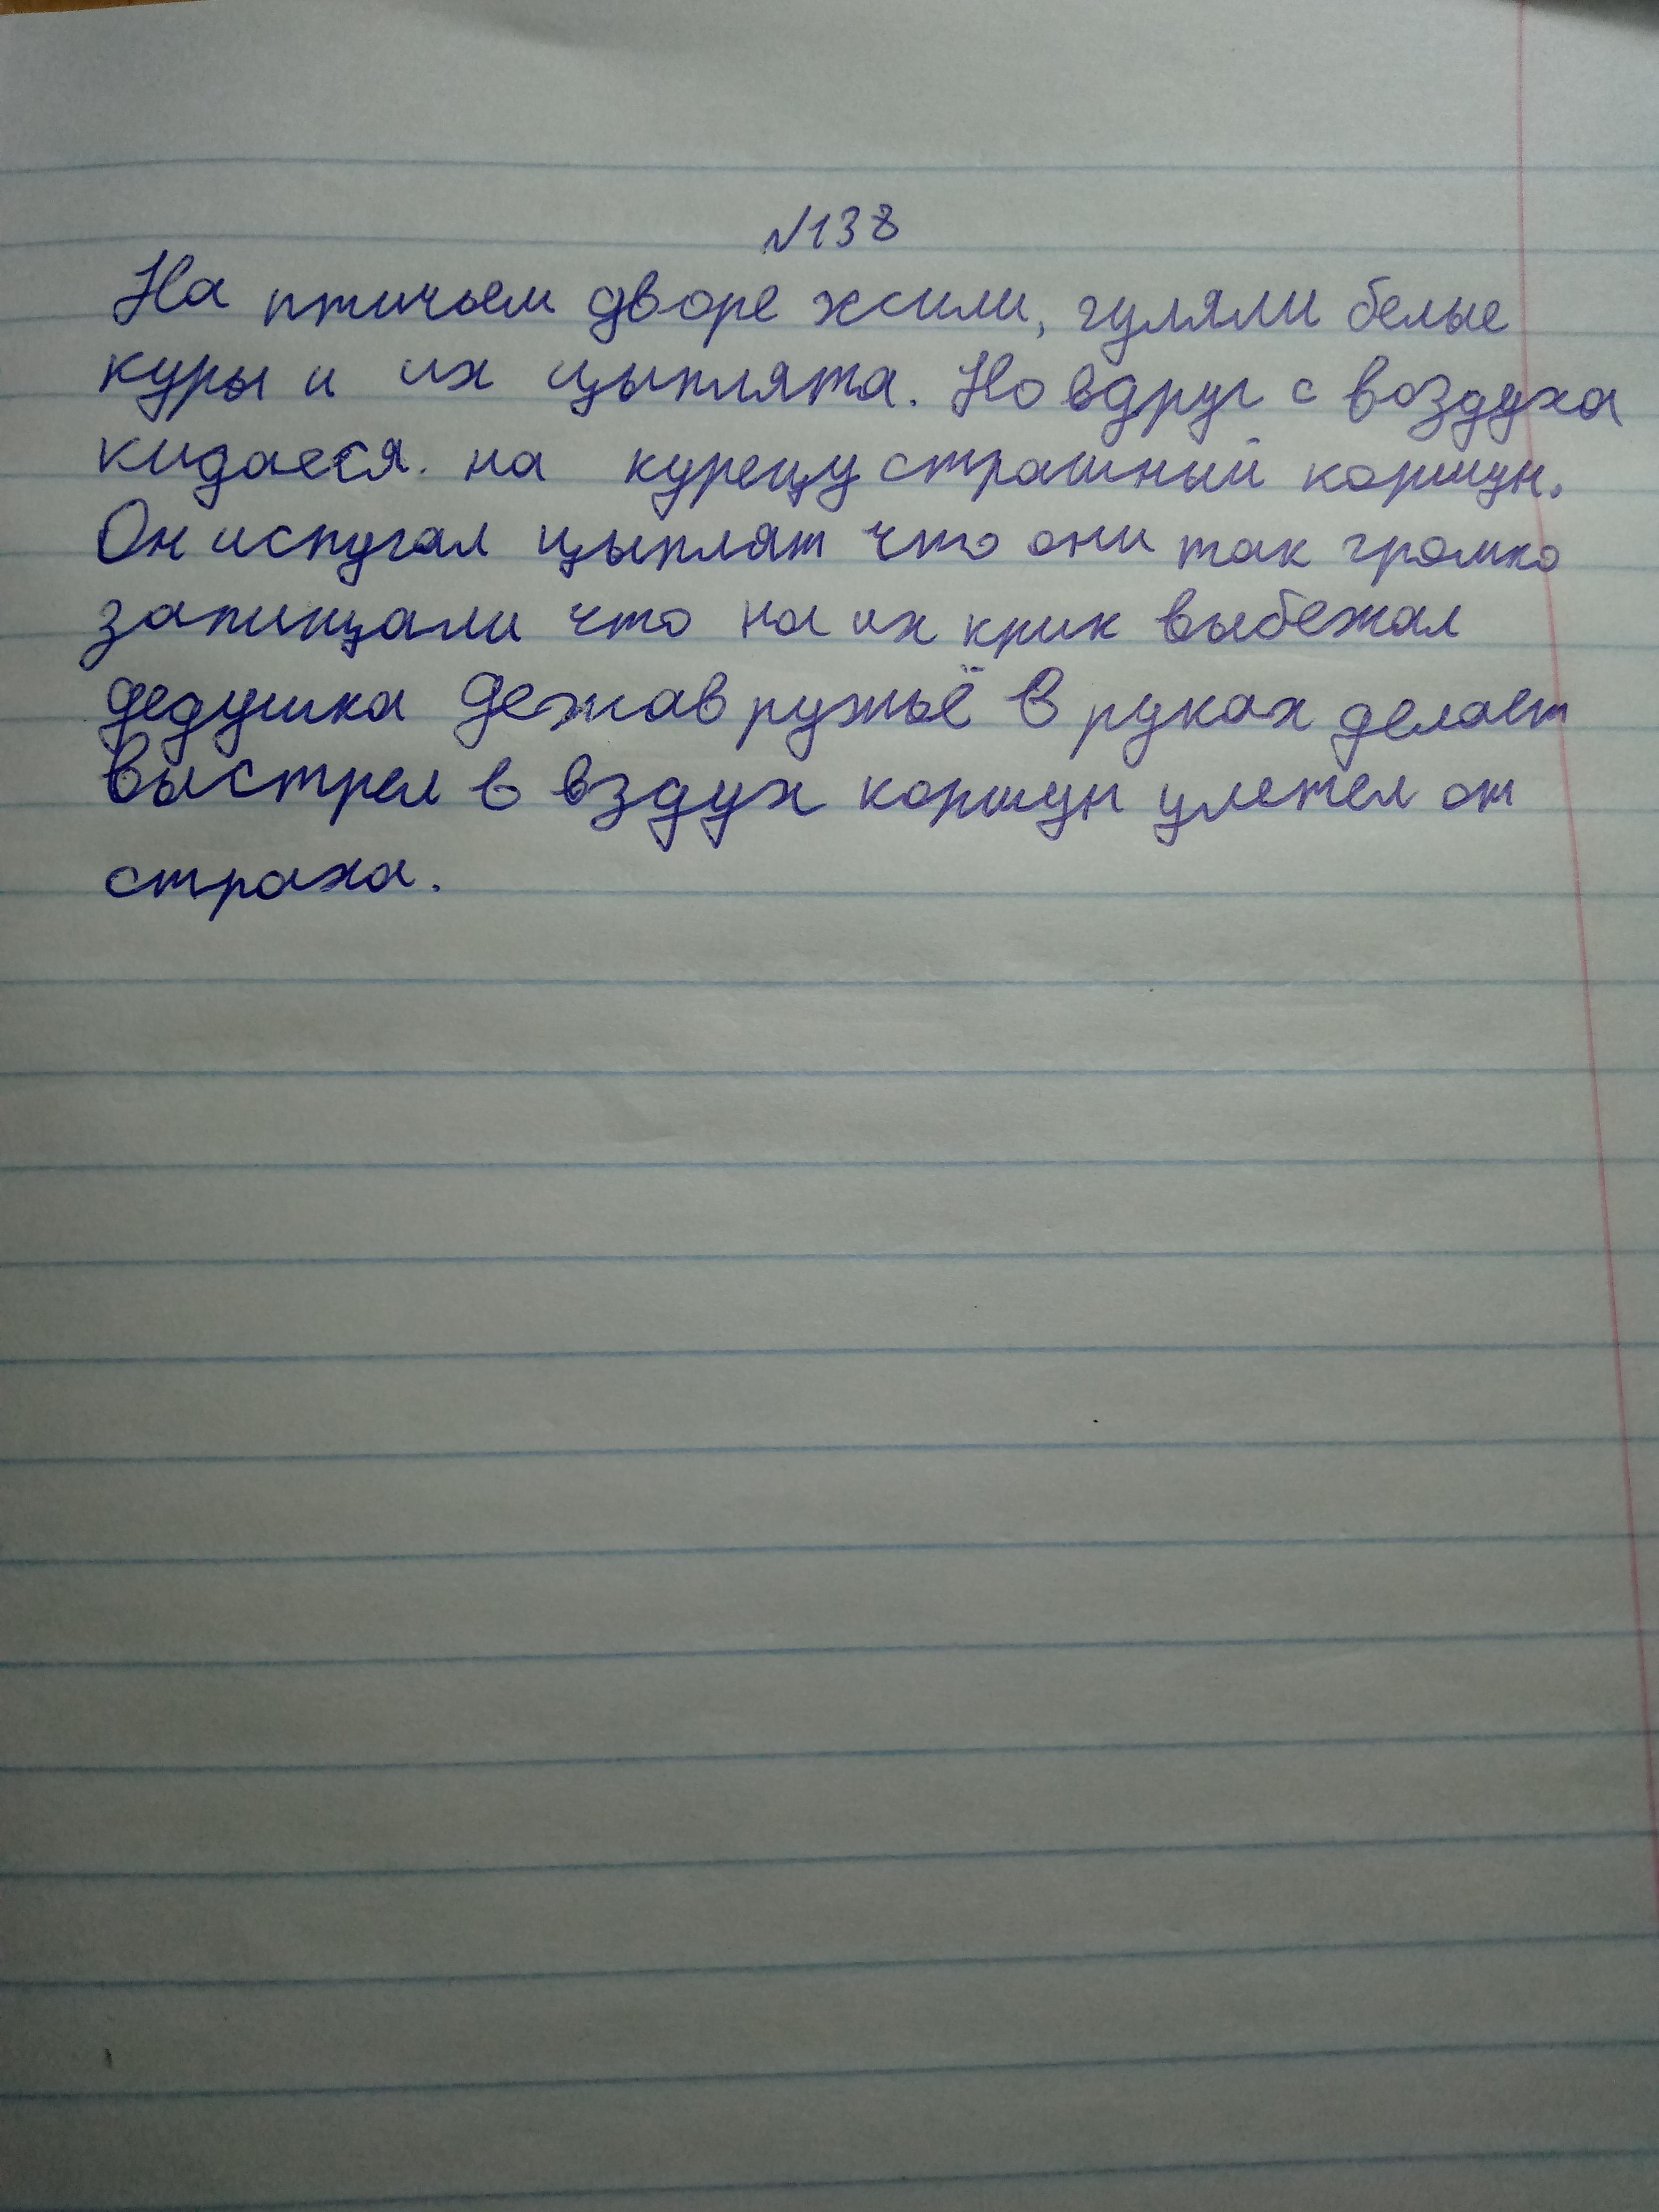 №138
На птичьем дворе жили, гуляли белые
куры и их цыплята. Но вдруг с воздуха
кидаеся. на курецу страшный коршун.
Он испугал цыплят что они так громко
запищали что на их крик выбежал
дедушка дежав ружьё в руках делает
выстрел в вздух коршун улетел от
страха.